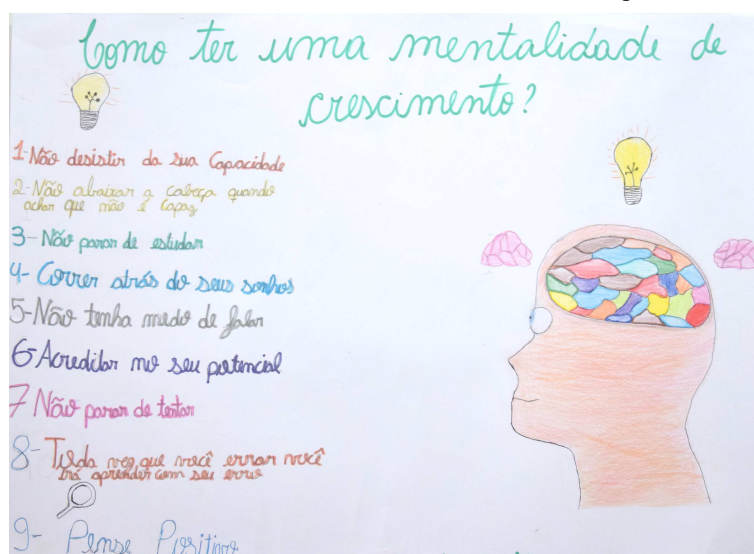 Como ter uma mentalidade de
crescimento?
1-Não desistir da sua Capacidade
2-Não abaixar a cabeça quando
achar que não é capaz
3-Não parar de estudar
4-Correr atrás do seus sonhos
5-Não tenha medo de falar
6-Acreditar no seu potencial
7 Não parar de tentar
8-Toda vez que você errar você
irá aprender com seu erro
9- Pense Positivo